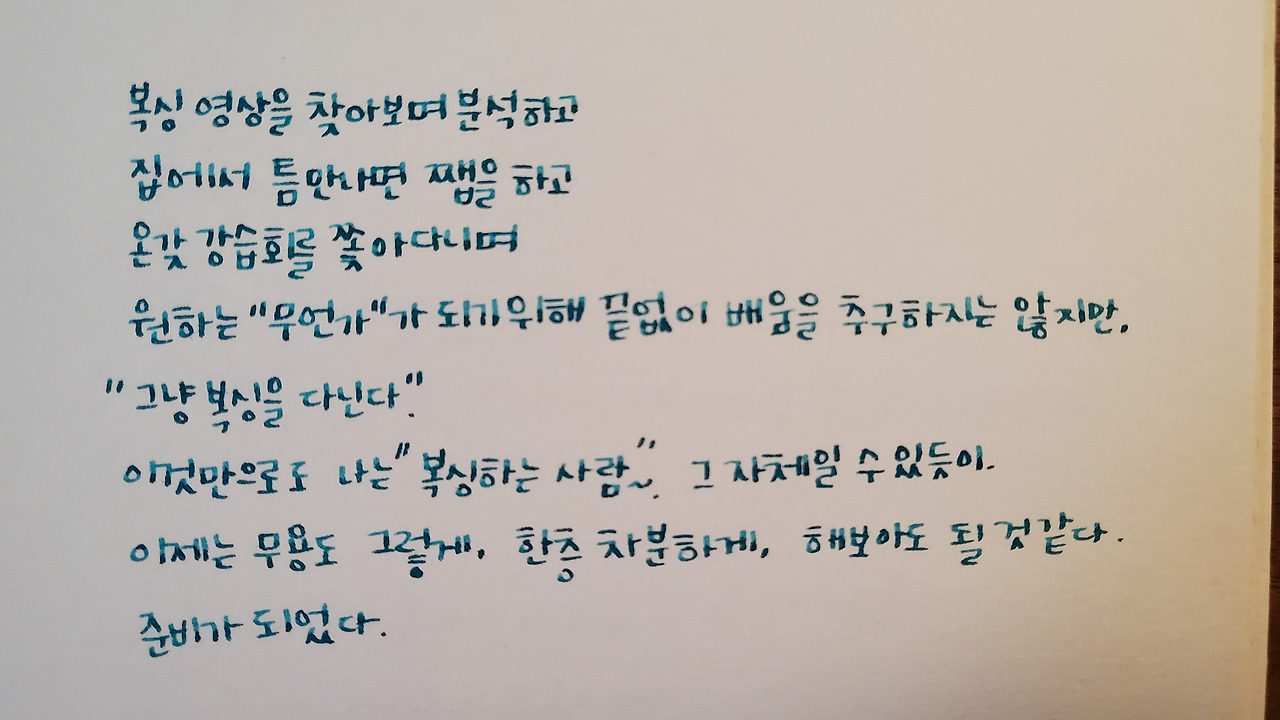 복싱 영상을 찾아보며 분석하고
집에서 틈만나면 쨉을 하고
온갖 강습회를 쫓아다니며
원하는 "무언가"가 되기위해 끝없이 배움을 추구하지는 않지만,
"그냥 복싱을 다닌다".
이것만으로도 나는 "복싱하는 사람~". 그 자체일 수 있듯이.
이제는 무용도 그렇게, 한층 차분하게, 해보아도 될 것 같다.
준비가 되었다.